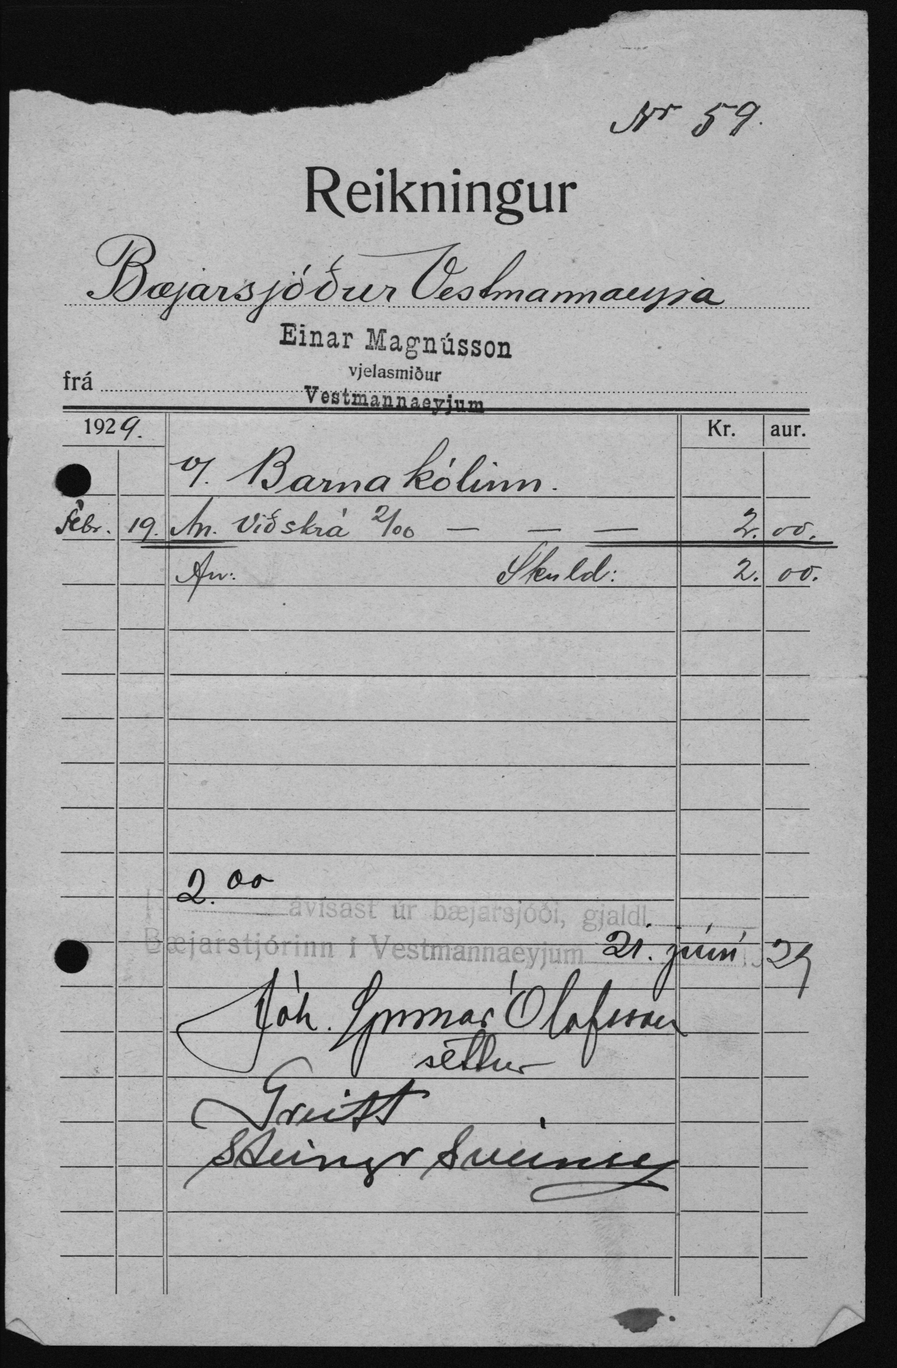 Nr 59.
Reikningur
Bæjarsjóður Vestmannaeyja
Einar Magnússon
vjelasmiður
frá
Vestmannaeyjum
1929. Kr. aur.
v/. Barnaskólinn.
Febr. 19. An. Viðskrá 2/00 — — — 2. 00.
An: Skuld: 2. 00.
2.00
ávísast úr bæjarsjóði, gjaldl.
Bæjarstjórinn í Vestmannaeyjum 21. júní 1929
Jóh. Gunnar Ólafsson
settur
Greitt
Steingr Sveinss